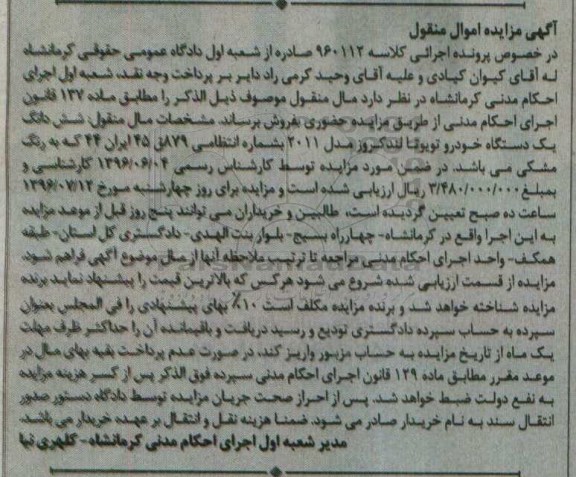 آگهی مزایده اموال منقول
در خصوص پرونده اجرائی کلاسه ۹۶۰۱۱۲ صادره از شعبه اول دادگاه عمومی حقوقی کرمانشاه
له آقای کیوان کیادی و علیه آقای وحید کرمی راد دایر بر پرداخت وجه نقد، شعبه اول اجرای
احکام مدنی کرمانشاه در نظر دارد مال منقول موصوف ذیل الذکر را مطابق ماده ۱۳۷ قانون
اجرای احکام مدنی از طریق مزایده حضوری بفروش برساند. مشخصات مال منقول: شش دانگ
یک دستگاه خودرو تویوتا لندکروز مدل ۲۰۱۱ بشماره انتظامی ۸۷۹ق ۴۵ ایران ۴۴ که به رنگ
مشکی می باشد. در ضمن مورد مزایده توسط کارشناس رسمی ۱۳۹۶/۰۶/۰۴ کارشناسی و
بمبلغ ۳/۴۸۰/۰۰۰/۰۰۰ ریال ارزیابی شده است و مزایده برای روز چهارشنبه مورخ ۱۳۹۶/۰۷/۱۲
ساعت ده صبح تعیین گردیده است، طالبین و خریداران می توانند پنج روز قبل از موعد مزایده
به این اجرا واقع در کرمانشاه- چهارراه بسیج- بلوار بنت الهدی- دادگستری کل استان- طبقه
همکف- واحد اجرای احکام مدنی مراجعه تا ترتیب ملاحظه آنها از مال موضوع آگهی فراهم شود.
مزایده از قسمت ارزیابی شده شروع می شود هرکس که بالاترین قیمت را پیشنهاد نماید برنده
مزایده شناخته خواهد شد و برنده مزایده مکلف است ۱۰٪ بهای پیشنهادی را فی المجلس بعنوان
سپرده به حساب سپرده دادگستری تودیع و رسید دریافت و باقیمانده آن را حداکثر ظرف مهلت
یک ماه از تاریخ مزایده به حساب مزبور واریز کند، در صورت عدم پرداخت بقیه بهای مال در
موعد مقرر مطابق ماده ۱۲۹ قانون اجرای احکام مدنی سپرده فوق الذکر پس از کسر هزینه مزایده
به نفع دولت ضبط خواهد شد. پس از احراز صحت جریان مزایده توسط دادگاه دستور صدور
انتقال سند به نام خریدار صادر می شود. ضمنا هزینه نقل و انتقال بر عهده خریدار می باشد.
مدیر شعبه اول اجرای احکام مدنی کرمانشاه- گلهری نیا